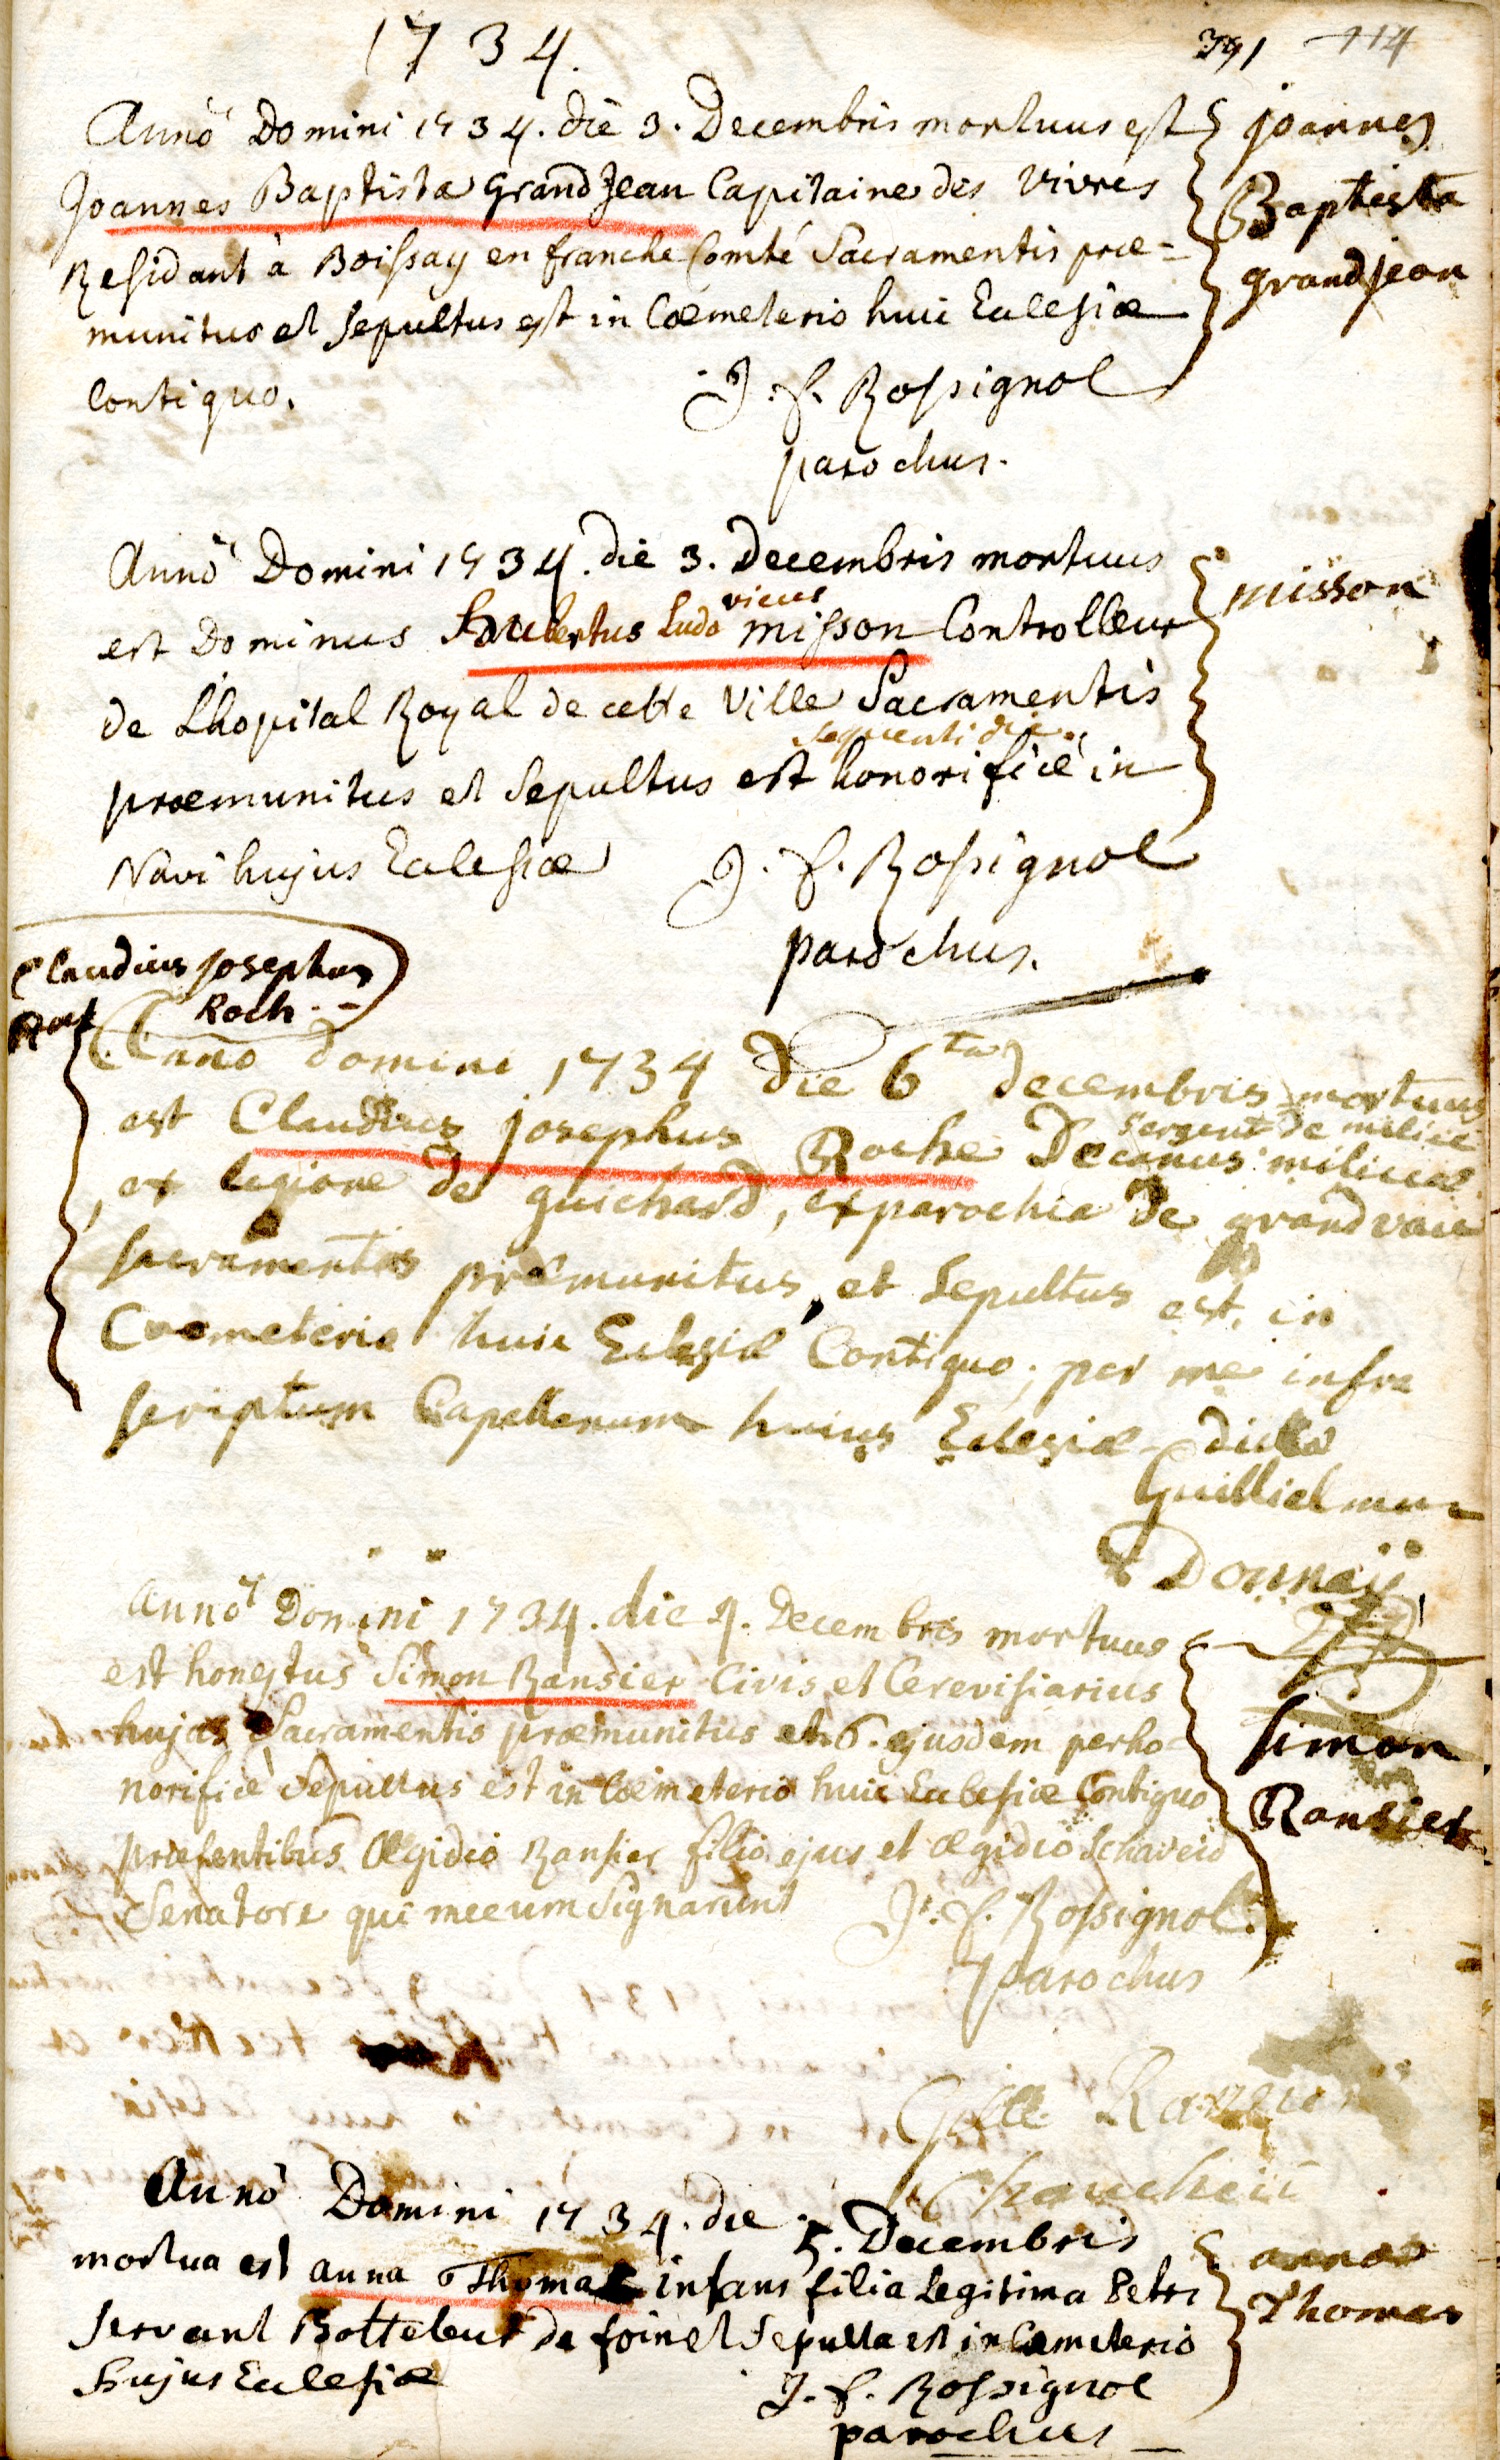 1734.
391 114
Anno Domini 1734. die 3. Decembris mortuus est
Joannes Baptista Grand Jean Capitaine des vivres
Residant à Boissay en franche Comté Sacramentis præ=
munitus et Sepultus est in Cœmeterio huic Ecclesiæ
Contiguo.
J. f. Rossignol
parochus.
joannes
Baptista
grandjean
Anno Domini 1734. die 3. Decembris mortuus
est Dominus Hubertus Ludovicus misson Controlleur
de Lhopital Royal de cette Ville Sacramentis
sequenti die
præmunitus et Sepultus est honorificè in
Navi hujus Ecclesiæ
J. f. Rossignol
parochus.
misson
Claudius josephus
Roch
Anno domini 1734 die 6ta decembris mortuus
sergent de milice
est Claudius josephus Roche Decanus miliciæ
ex legione de guichard, ex parochia de grandvaux
sacramentis præmunitus, et sepultus est, in
Coemeterio huic Eclesiæ Contiguo; per me infra
scriptum Capellanum huius Eclesiæ
Guillielmus
Dounaÿ
Anno Domini 1734. die 4. Decembris mortuus
est honestus Simon Ransier Civis et Cerevisiarius
hujas Sacramentis præmunitus et 6. ejusdem perho=
norificè Sepultus est in Cœmeterio huic Ecclesiæ Contiguo
præsentibus Ægidio Ransier filio ejus et Ægidio Schaveid
Senatore qui mecum Signarunt
J. f. Rossignol
parochus
Simon
Ransier
Gille
Anno Domini 1734. die 5. Decembris
mortua est anna Thomas infans filia Legitima Petri
Servant Botteleur de foin et Sepulta est in Cœmeterio
hujus Ecclesiæ
J. f. Rossignol
parochus
anna
Thomas